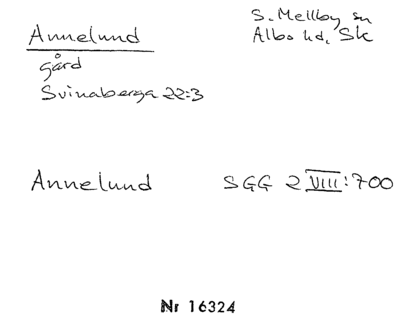 Annelund
S. Mellby sn
Albo hd, Sk
gård
Svinaberga 22:3
Annelund SGG 2 VIII:700
Nr 16324